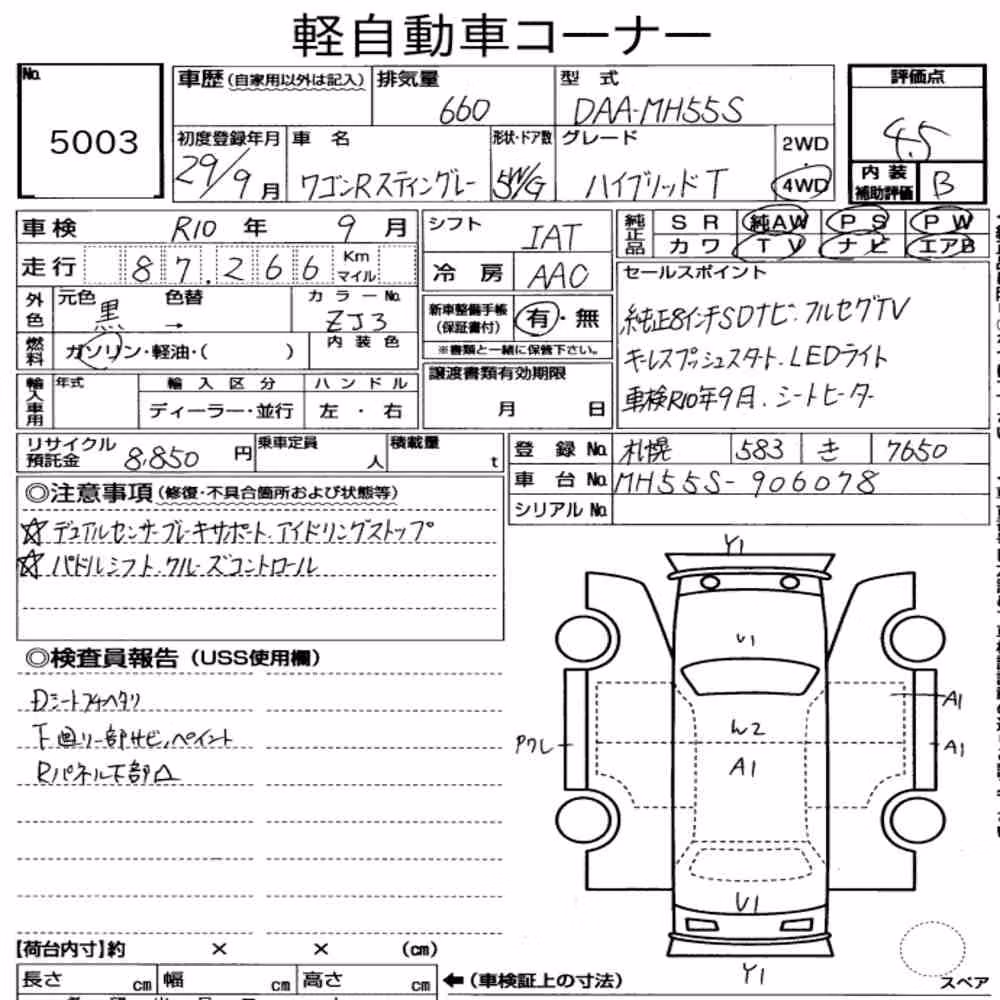 軽自動車コーナー
No.
5003
車歴(自家用以外は記入)
排気量
660
型 式
DAA-MH55S
評価点
4.5
初度登録年月
29/9月
車 名
ワゴンRスティングレー
形状・ドア数
5W/G
グレード
ハイブリッドT
2WD
4WD
内装補助評価
B
車検 R10 年 9 月
シフト
IAT
純正品
SR 純AW PS PW
カワ TV ナビ エアB
走行 87.266 Km マイル
冷房
AAC
セールスポイント
純正8インチSDナビ・フルセグTV
キーレスプッシュスタート.LEDライト
車検R10年9月.シートヒーター
外色
元色
黒
色替
→
カラーNo.
ZJ3
新車整備手帳(保証書付)
有・無
※書類と一緒に保管下さい。
燃料
ガソリン・軽油・( )
内装色
譲渡書類有効期限
月 日
輸入車用
年式
輸入区分
ディーラー・並行
ハンドル
左 ・ 右
リサイクル預託金
8,850 円
乗車定員
人
積載量
t
登 録 No. 札幌 583 き 7650
車 台 No. MH55S-906078
シリアル No.
◎注意事項(修復・不具合箇所および状態等)
☆デュアルセンサーブレーキサポート.アイドリングストップ
☆パドルシフト.クルーズコントロール
◎検査員報告(USS使用欄)
Dシートフチヘタリ
下廻り一部サビ,ペイント
Rパネル下部凸
Y1
U1
W2
A1
A1
A1
Pワレ
U1
Y1
スペア
【荷台内寸】約 × × (cm)
長さ cm 幅 cm 高さ cm
←(車検証上の寸法)